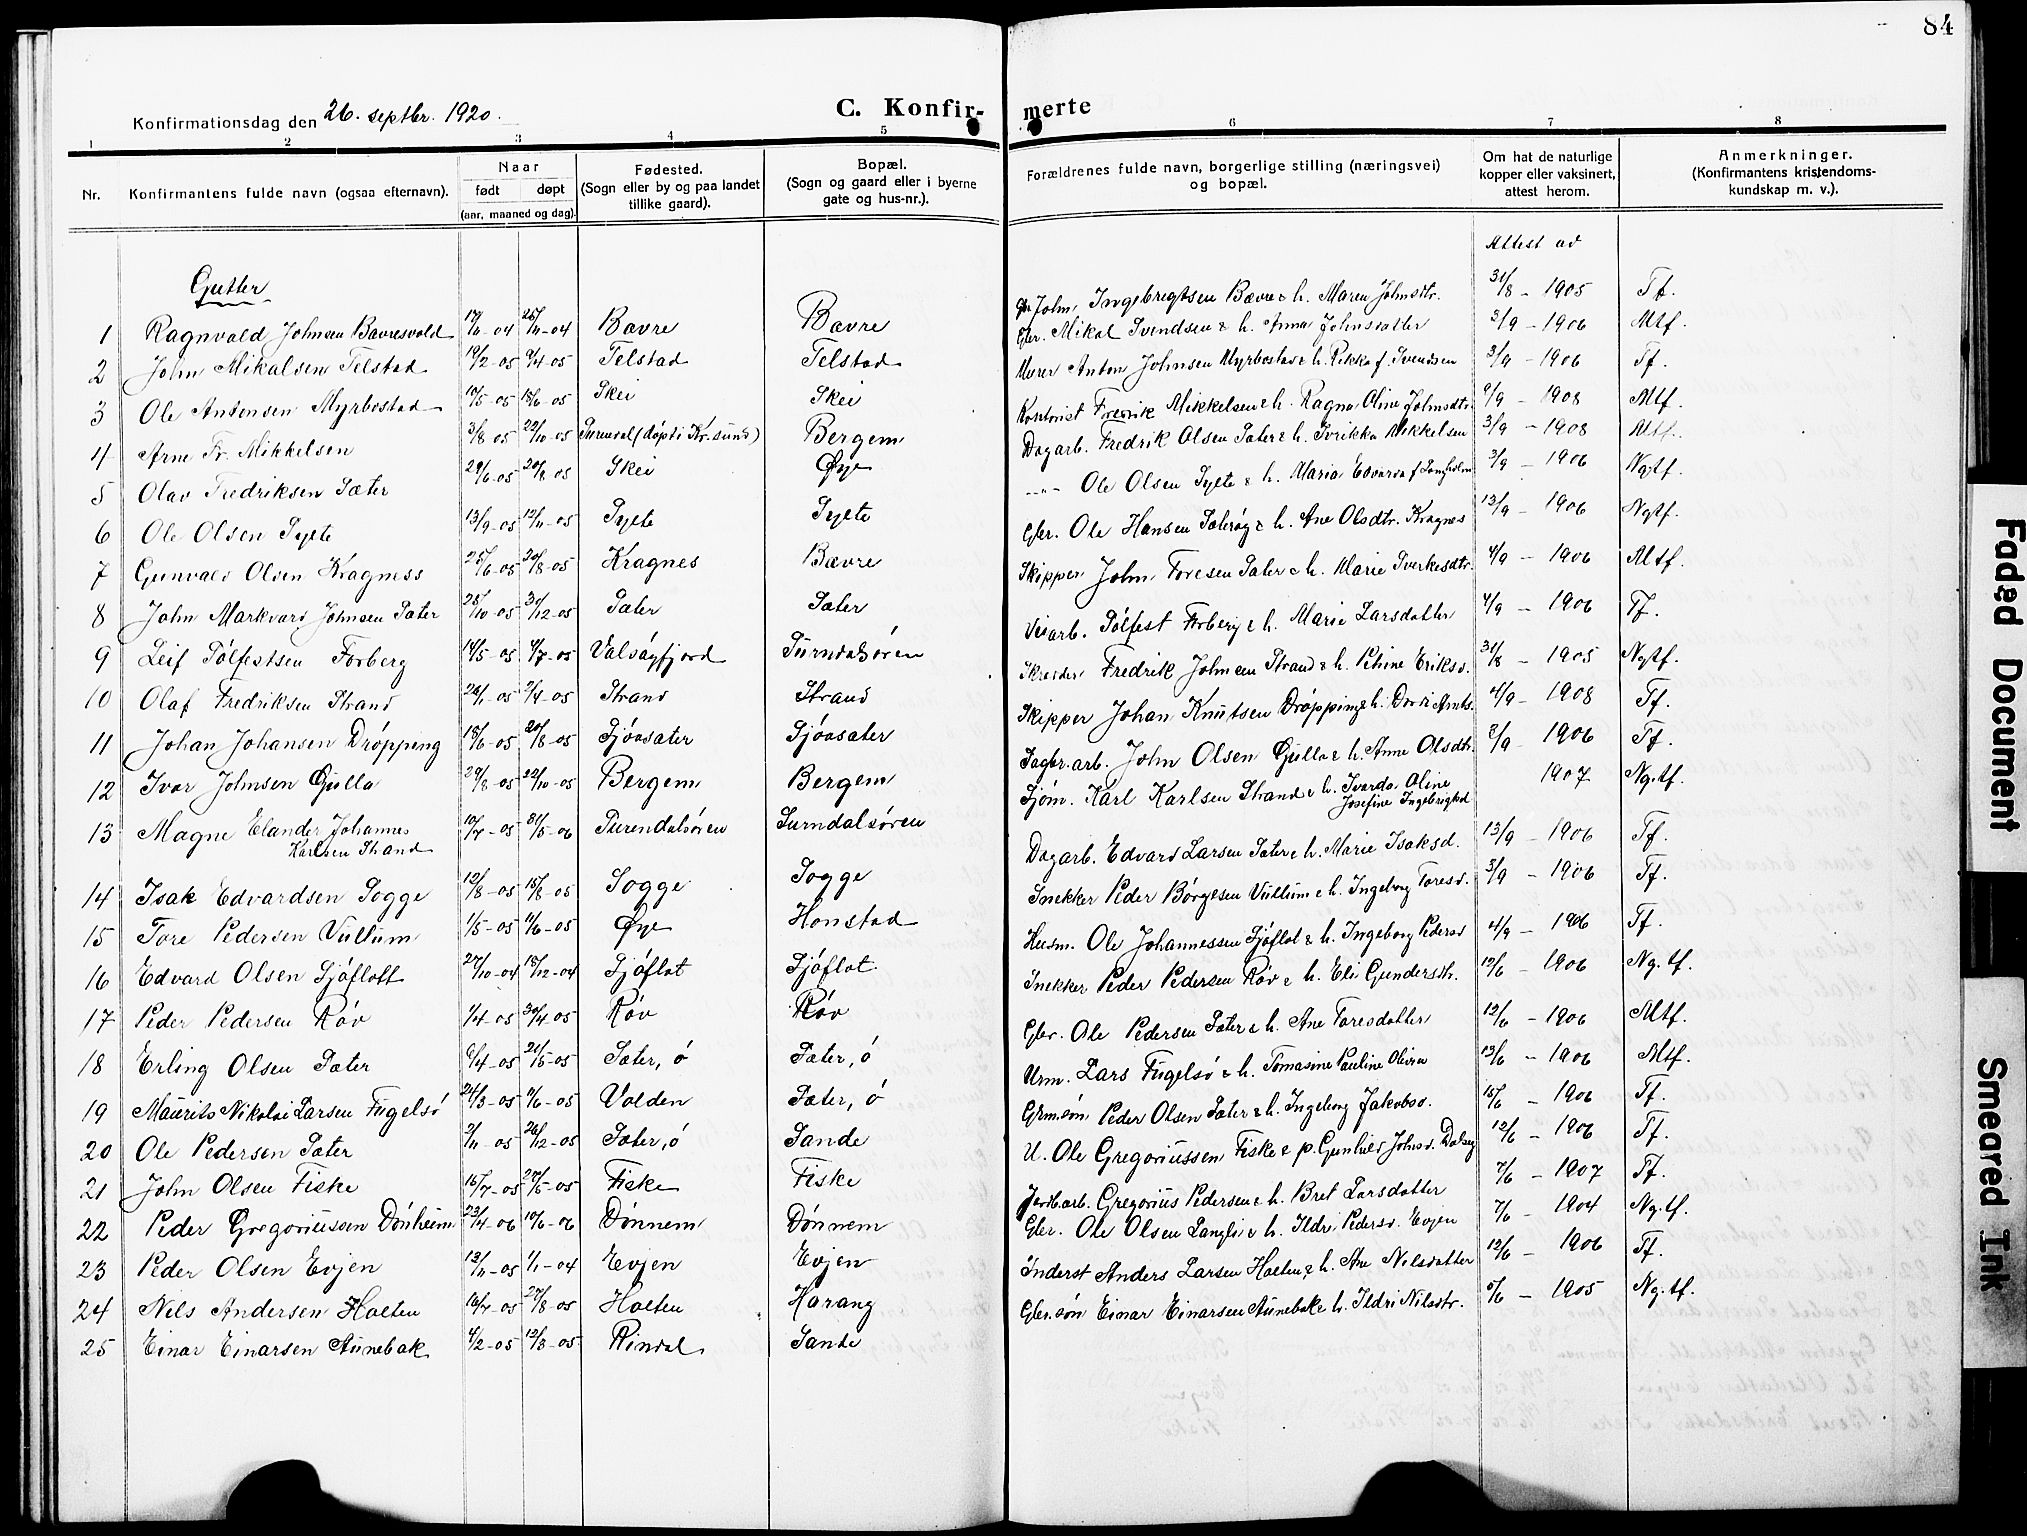 84
Konfirmationsdag den 26. septbr. 1920.
C. Konfir-merte
1 2 3 4 5 6 7 8
Nr. Konfirmantens fulde navn (ogsaa efternavn). Naar født døpt (aar, maaned og dag). Fødested. (Sogn eller by og paa landet tillike gaard). Bopæl. (Sogn og gaard eller i byerne gate og hus-nr.). Forældrenes fulde navn, borgerlige stilling (næringsvei) og bopæl. Om hat de naturlige kopper eller vaksinert, attest herom. Anmerkninger. (Konfirmantens kristendoms-kundskap m. v.).
Attest av
Gutter
1 Ragnvald Johnsen Bævresvold 25/11-04 Bævre Bævre John Ingebregtsen Bævre & h. Maren Johnsdtr. 31/8 - 1905 Tf.
2 John Mikalsen Telstad 19/2-05 9/4-05 Telstad Telstad Gbr. Mikal Svendsen & h. Anna Johnsdatter 3/9 - 1906 Mtf.
3 Ole Antonsen Myrbostad 18/6-05 Skei Skei Murer Anton Johnsen Myrbostad & h. Rikka f. Svendsen 3/9 - 1906 Tf.
4 Arne Fr. Mikkelsen 3/8 05 22/10-05 Surendal (døpt i Kr.sund) Bergem Kontorist Fredrik Mikkelsen & h. Ragna Oline Johnsdtr. 9/9 - 1908 Mtf.
5 Olav Fredriksen Sæter 29/6-05 20/8 05 Skei Øye Dagarb. Fredrik Olsen Sæter & h. Sverikka Mikkelsen 3/9 - 1908 Mtf.
6 Ole Olsen Sylte 13/9-05 12/11-05 Sylte Sylte -"- Ole Olsen Sylte & h. Maria Edvarda f. Langholm 3/9 - 1906 Ngtf.
7 Gunvald Olsen Kragness 25/6-05 20/8-05 Kragnes Bævre Gbr. Ole Hansen Sæterøy & h. Ane Olsdtr. Kragnes 13/9 - 1906 Ngtf.
8 John Markvard Johnsen Sæter 28/10-05 31/12-05 Sæter Sæter Skipper John Toresen Sæter & h. Marie Sverkesdtr. 4/9 - 1906 Mtf.
9 Leif Sølfestsen Forberg 14/5-05 4/7-05 Valsøyfjord Surndalsøren Veiarb. Sølfest Forberg & h. Marie Larsdatter 4/9 - 1906 Tf.
10 Olaf Fredriksen Strand 26/1-05 2/4-05 Strand Strand Skræder Fredrik Johnsen Strand & h. Petrine Eriksd. 31/8 - 1905 Ngtf.
11 Johan Johansen Drøpping 18/6-05 20/8-05 Sjøasæter Sjøasæter Skipper Johan Knutsen Drøpping & h. 4/9 - 1908 Tf.
12 Ivar Johnsen Gulla 29/8-05 22/10-05 Bergem Bergem John Olsen Gulla & h. Anne Olsdtr. 2/9 - 1906 Tf.
13 Magne Elander Johannes Karlsen Strand 10/7-05 31/5-06 Surendalsøren Surndalsøren Sjøm. Karl Karlsen Strand & h. Ivarda Oline Josefine Ingebrigtsd. 1907 Ng.tf.
14 Isak Edvardsen Sogge 12/8-05 Sogge Sogge Dagarb. Edvard Larsen Sæter & h. Marie Isaksd. 13/9 - 1906 Tf.
15 Tore Pedersen Vullum 1/5-05 11/6-05 Øye Honstad Snekker Peder Børgesen Vullum & h. Ingeborg Toresd. 3/9 - 1906 Tf.
16 Edvard Olsen Sjøflott 27/10-04 18/12-04 Sjøflot Sjøflot. Husm. Ole Johannessen Sjøflot & h. Ingeborg Pedersd 4/9 - 1906 Tf.
17 Peder Pedersen Røv 1/4-05 30/4-05 Røv Røv Snekker Peder Pedersen Røv & h. Eli Gundersdtr. 12/6 - 1906 Ng.tf.
18 Erling Olsen Sæter 6/4-05 21/5-05 Sæter, ø Sæter, ø Gbr. Ole Pedersen Sæter & h. Ane Toresdatter 12/6 - 1906 Mtf.
19 Maurits Nikolai Larsen Fugelsø 24/3-05 11/6-05 Volden Sæter, ø Urm. Lars Fugelsø & h. Tomasine Pauline Olivia 13/6 - 1906 Mtf.
20 Ole Pedersen Sæter 2/11-05 26/12-05 Sæter, ø Sande Peder Olsen Sæter & h. Ingeborg Jakobsd. 15/6 - 1906 Tf.
21 John Olsen Fiske 16/7-05 Fiske Fiske U. Ole Gregoriussen Fiske & p. Gunhild Johnsd. Dalseg 12/6 - 1906 Tf.
22 Peder Gregoriussen Dønheim 23/4-06 10/6-06 Dønnem Dønnem Jordarb. Gregorius Pedersen & h. Bret Larsdatter 7/6 - 1907 Tf.
23 Peder Olsen Evjen 1/1-04 Evjen Evjen Gbr. Ole Olsen Langli & h. Ildri Pedersd. Evjen 7/6 - 1904 Ng.tf.
24 Nils Andersen Holten 16/7-05 27/8-05 Holten Harang Inderst Anders Larsen Holten & h. Ane Nilsdatter 12/6 - 1906 Tf.
25 Einar Einarsen Aunebak 4/2-05 12/3-05 Rindal Sande Gbr.søn Einar Einarsen Aunebak & h. Ildri Nilsdtr. 6/6 - 1905 Ng.tf.
Faded Document
Smeared Ink